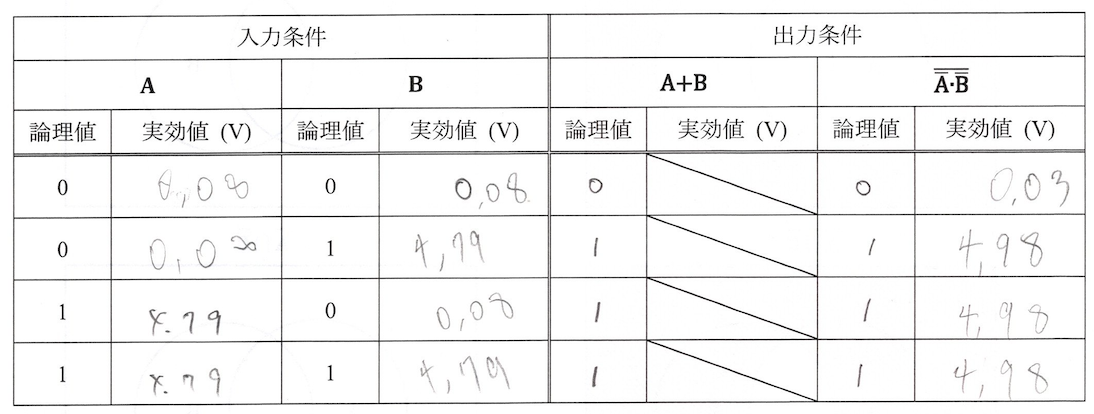 入力条件 出力条件
A B A+B A̿·B̿
論理値 実効値 (V) 論理値 実効値 (V) 論理値 実効値 (V) 論理値 実効値 (V)
0 0,08 0 0,08 0 0 0,03
0 0,08 1 4,79 1 1 4,98
1 4.79 0 0,08 1 1 4,98
1 4.79 1 4,79 1 1 4,98